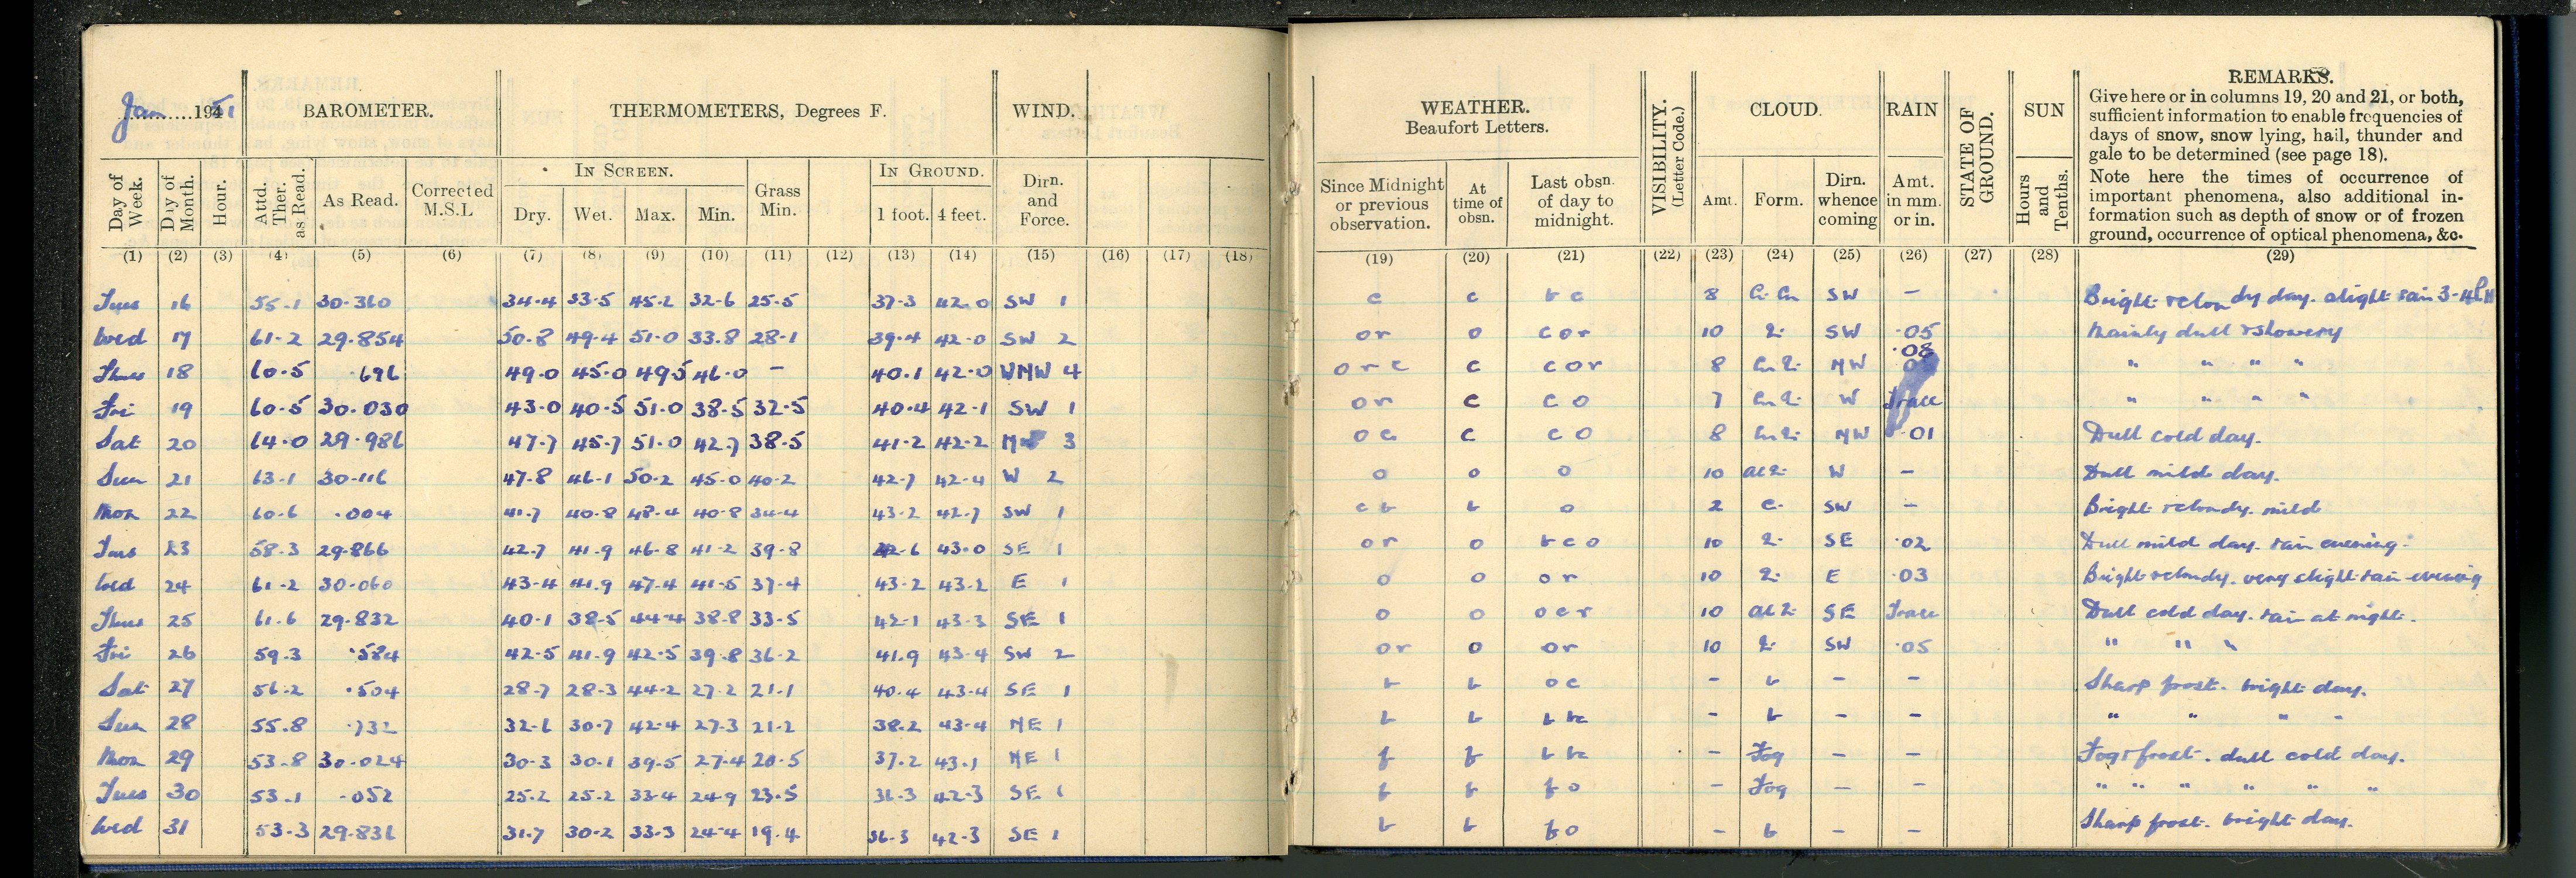 Jan 1951 BAROMETER. THERMOMETERS, Degrees F. WIND.
Day of Week. Day of Month. Hour. Attd. Ther. as Read. As Read. Corrected M.S.L IN SCREEN. Dry. Wet. Max. Min. Grass Min. IN GROUND. 1 foot. 4 feet. Dirn. and Force.
(1) (2) (3) (4) (5) (6) (7) (8) (9) (10) (11) (12) (13) (14) (15) (16) (17) (18)
Tues 16 55.1 30.360 34.4 33.5 45.2 32.6 25.5 37.3 42.0 SW 1
Wed 17 61.2 29.854 50.8 49.4 51.0 33.8 28.1 39.4 42.0 SW 2
Thurs 18 60.5 .696 49.0 45.0 49.5 46.0 — 40.1 42.0 WNW 4
Fri 19 60.5 30.030 43.0 40.5 51.0 38.5 32.5 40.4 42.1 SW 1
Sat 20 64.0 29.986 47.7 45.7 51.0 42.7 38.5 41.2 42.2 3
Sun 21 63.1 30.116 47.8 46.1 50.2 45.0 40.2 42.7 42.4 W 2
Mon 22 60.6 .004 41.7 40.8 48.4 40.8 34.4 43.2 42.7 SW 1
Tues 23 58.3 29.866 42.7 41.9 46.8 41.2 39.8 42.6 43.0 SE 1
Wed 24 61.2 30.060 43.4 41.9 47.4 41.5 37.4 43.2 43.2 E 1
Thurs 25 61.6 29.832 40.1 38.5 44.4 38.8 33.5 42.1 43.3 SE 1
Fri 26 59.3 .584 42.5 41.9 42.5 39.8 36.2 41.9 43.4 SW 2
Sat 27 56.2 .504 28.7 28.3 44.2 27.2 21.1 40.4 43.4 SE 1
Sun 28 55.8 .732 32.6 30.7 42.4 27.3 21.2 38.2 43.4 NE 1
Mon 29 53.8 30.024 30.3 30.1 39.5 27.4 20.5 37.2 43.1 NE 1
Tues 30 53.1 .052 25.2 25.2 33.4 24.9 23.5 36.3 42.3 SE 1
Wed 31 53.3 29.836 31.7 30.2 33.3 24.4 19.4 36.3 42.3 SE 1
WEATHER. Beaufort Letters. VISIBILITY. (Letter Code.) CLOUD. RAIN STATE OF GROUND. SUN REMARKS.
Give here or in columns 19, 20 and 21, or both,
sufficient information to enable frequencies of
days of snow, snow lying, hail, thunder and
gale to be determined (see page 18).
Note here the times of occurrence of
important phenomena, also additional in-
formation such as depth of snow or of frozen
ground, occurrence of optical phenomena, &c.
Since Midnight or previous observation. At time of obsn. Last obsn. of day to midnight. Amt. Form. Dirn. whence coming Amt. in mm. or in. Hours and Tenths.
(19) (20) (21) (22) (23) (24) (25) (26) (27) (28) (29)
c c bc 8 SW — Bright & cloudy day. slight rain 3-4PM
or o cor 10 SW .05 Mainly dull & showery
orc c cor 8 NW .08 " " " "
or c co 7 W Trace " " " "
oc c co 8 NW .01 Dull cold day.
o o o 10 W — Dull mild day.
cb b o 2 SW — Bright & cloudy. mild
or o bco 10 SE .02 Dull mild day. rain evening.
o o or 10 E .03 Bright & cloudy. very slight rain evening
o o ocr 10 SE Trace Dull cold day. rain at night.
or o or 10 SW .05 " " "
b b oc — b — — Sharp frost. bright day.
b b b bc — b — — " " " "
f f b bc — Fog — — Fog & frost. dull cold day.
f f fo — Fog — — " " " " " "
b b fo — b — — Sharp frost. bright day.